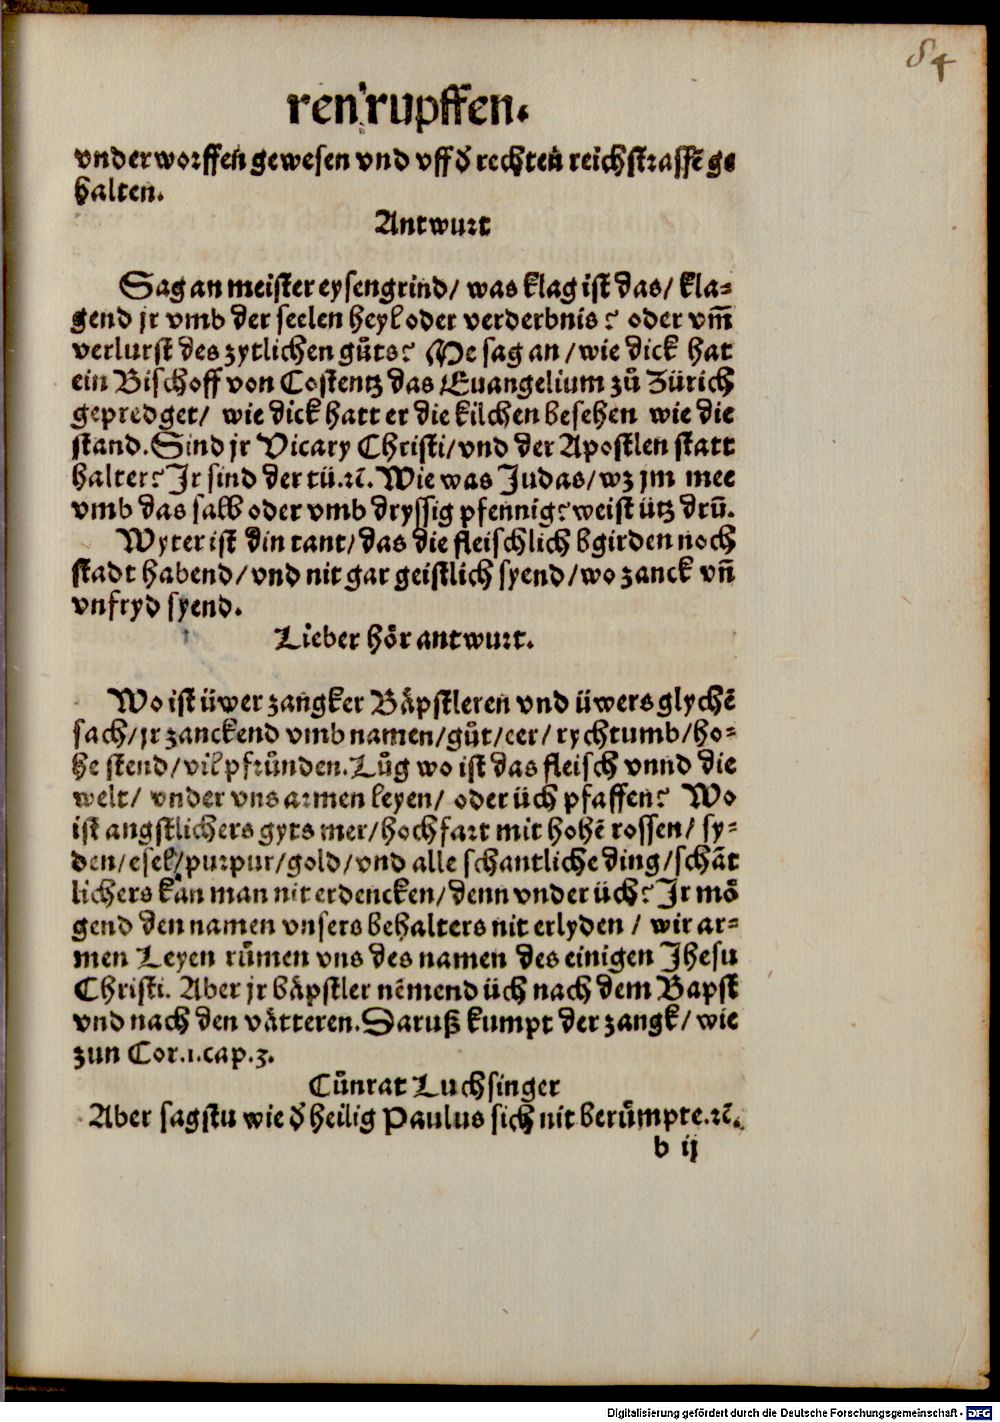 84
ren rupffen.
vnderworffen gewesen vnd vff d̕ rechten reichstrassē ge
halten.
Antwurt
Sag an meister eysengrind/ was klag ist das/ kla⸗
gend jr vmb der seelen heyl oder verderbnis? oder vm̄
verlurst des zytlichen gůts? Me sag an/wie dick hat
ein Bischoff von Costentz das Euangelium zů Zürich
gepredget/ wie dick hatt er die kilchen besehen wie die
stand. Sind jr Vicary Christi/vnd der Apostlen statt
halter? Jr sind der tü.ꝛc̄. Wie was Judas/wz jm mee
vmb das salb oder vmb dryssig pfennig? weist ütz drū.
Wyter ist din tant/das die fleischlich bgirden noch
stadt habend/vnd nit gar geistlich syend/wo zanck vn̄
vnfryd syend.
Lieber hör antwurt.
Wo ist üwer zangker Bäpstleren vnd üwers glychē
sach/jr zanckend vmb namen/gůt/eer/rychtumb/ho⸗
he stend/vil pfrůnden. Lůg wo ist das fleisch vnnd die
welt/ vnder vns armen leyen/ oder üch pfaffen? Wo
ist angstlichers gyts mer/hochfart mit hohē rossen/ sy⸗
den/esel/purpur/gold/vnd alle schantliche ding/schāt
lichers kan man nit erdencken/denn vnder üch? Jr mö
gend den namen vnsers behalters nit erlyden / wir ar⸗
men Leyen růmen vns des namen des einigen Jhesu
Christi. Aber jr bäpstler nēmend üch nach dem Bapst
vnd nach den vätteren. Daruß kumpt der zangk/ wie
zun Cor.1.cap.3.
Cůnrat Luchsinger
Aber sagstu wie d̕ heilig Paulus sich nit berůmpte.ꝛc̄.
b ij
Digitalisierung gefördert durch die Deutsche Forschungsgemeinschaft - DFG